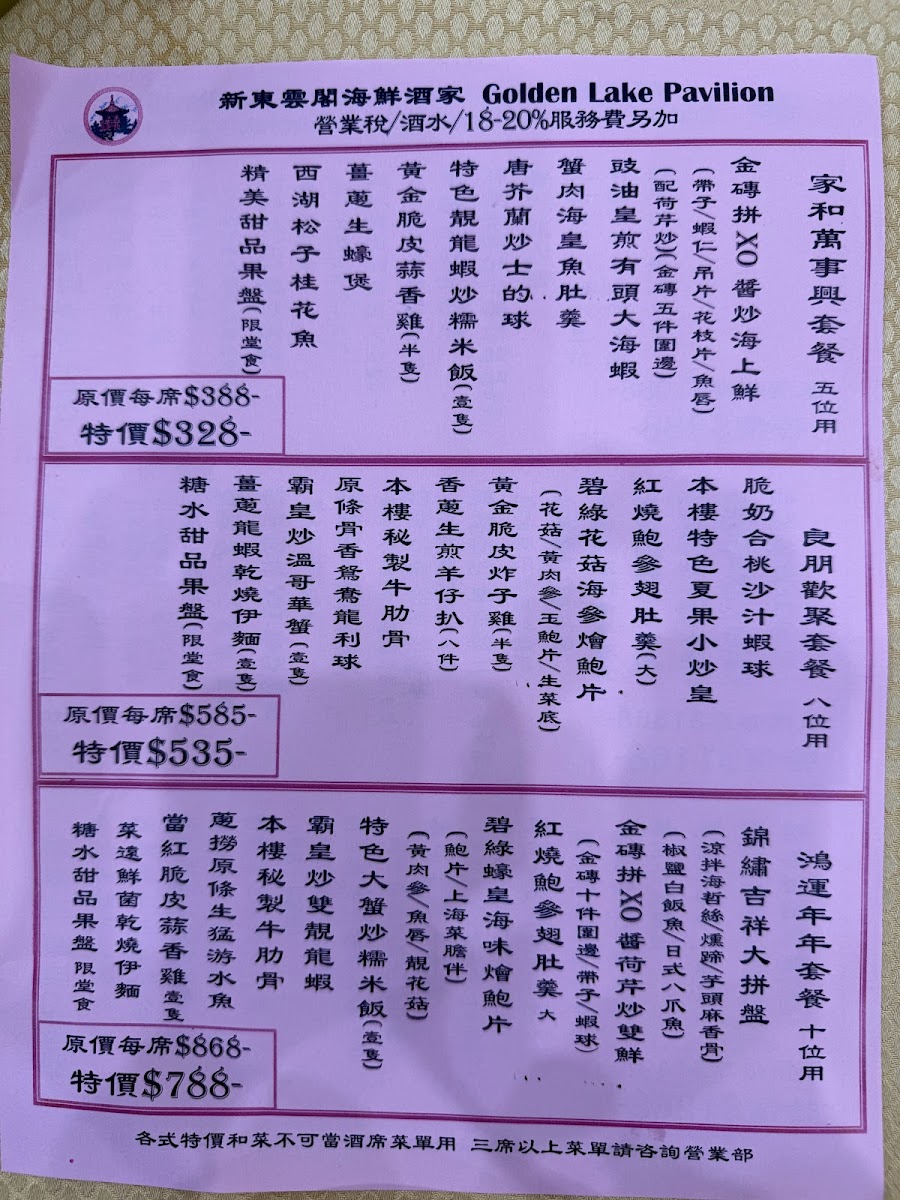 新東雲閣海鮮酒家 Golden Lake Pavilion
營業稅/酒水/18-20%服務費另加
家和萬事興套餐 五位用
金磚拼XO醬炒海上鮮
(帶子/蝦仁/吊片/花枝片/魚唇)
(配荷芹炒)(金磚五件圍邊)
豉油皇煎有頭大海蝦
蟹肉海皇魚肚羹
唐芥蘭炒士的球
特色靚龍蝦炒糯米飯(壹隻)
黃金脆皮蒜香雞(半隻)
薑蔥生蠔煲
西湖松子桂花魚
精美甜品果盤(限堂食)
原價每席$388-
特價$328-
良朋歡聚套餐 八位用
脆奶合桃沙汁蝦球
本樓特色夏果小炒皇
紅燒鮑參翅肚羹(大)
碧綠花菇海參燴鮑片
(花菇/黃肉參/玉鮑片/生菜底)
黃金脆皮炸子雞(半隻)
香蔥生煎羊仔扒(八件)
本樓秘製牛肋骨
原條骨香鴛鴦龍利球
霸皇炒溫哥華蟹(壹隻)
薑蔥龍蝦乾燒伊麵(壹隻)
糖水甜品果盤(限堂食)
原價每席$585-
特價$535-
鴻運年年套餐 十位用
錦繡吉祥大拼盤
(涼拌海哲絲/燻蹄/芋頭麻香骨)
(椒鹽白飯魚/日式八爪魚)
金磚拼XO醬荷芹炒雙鮮
(金磚十件圍邊/帶子/蝦球)
紅燒鮑參翅肚羹 大
碧綠蠔皇海味燴鮑片
(鮑片/上海菜膽伴)
(黃肉參/魚唇/靚花菇)
特色大蟹炒糯米飯(壹隻)
霸皇炒雙靚龍蝦
本樓秘製牛肋骨
蔥撈原條生猛游水魚
當紅脆皮蒜香雞壹隻
菜遠鮮菌乾燒伊麵
糖水甜品果盤 限堂食
原價每席$868-
特價$788-
各式特價和菜不可當酒席菜單用 三席以上菜單請咨詢營業部